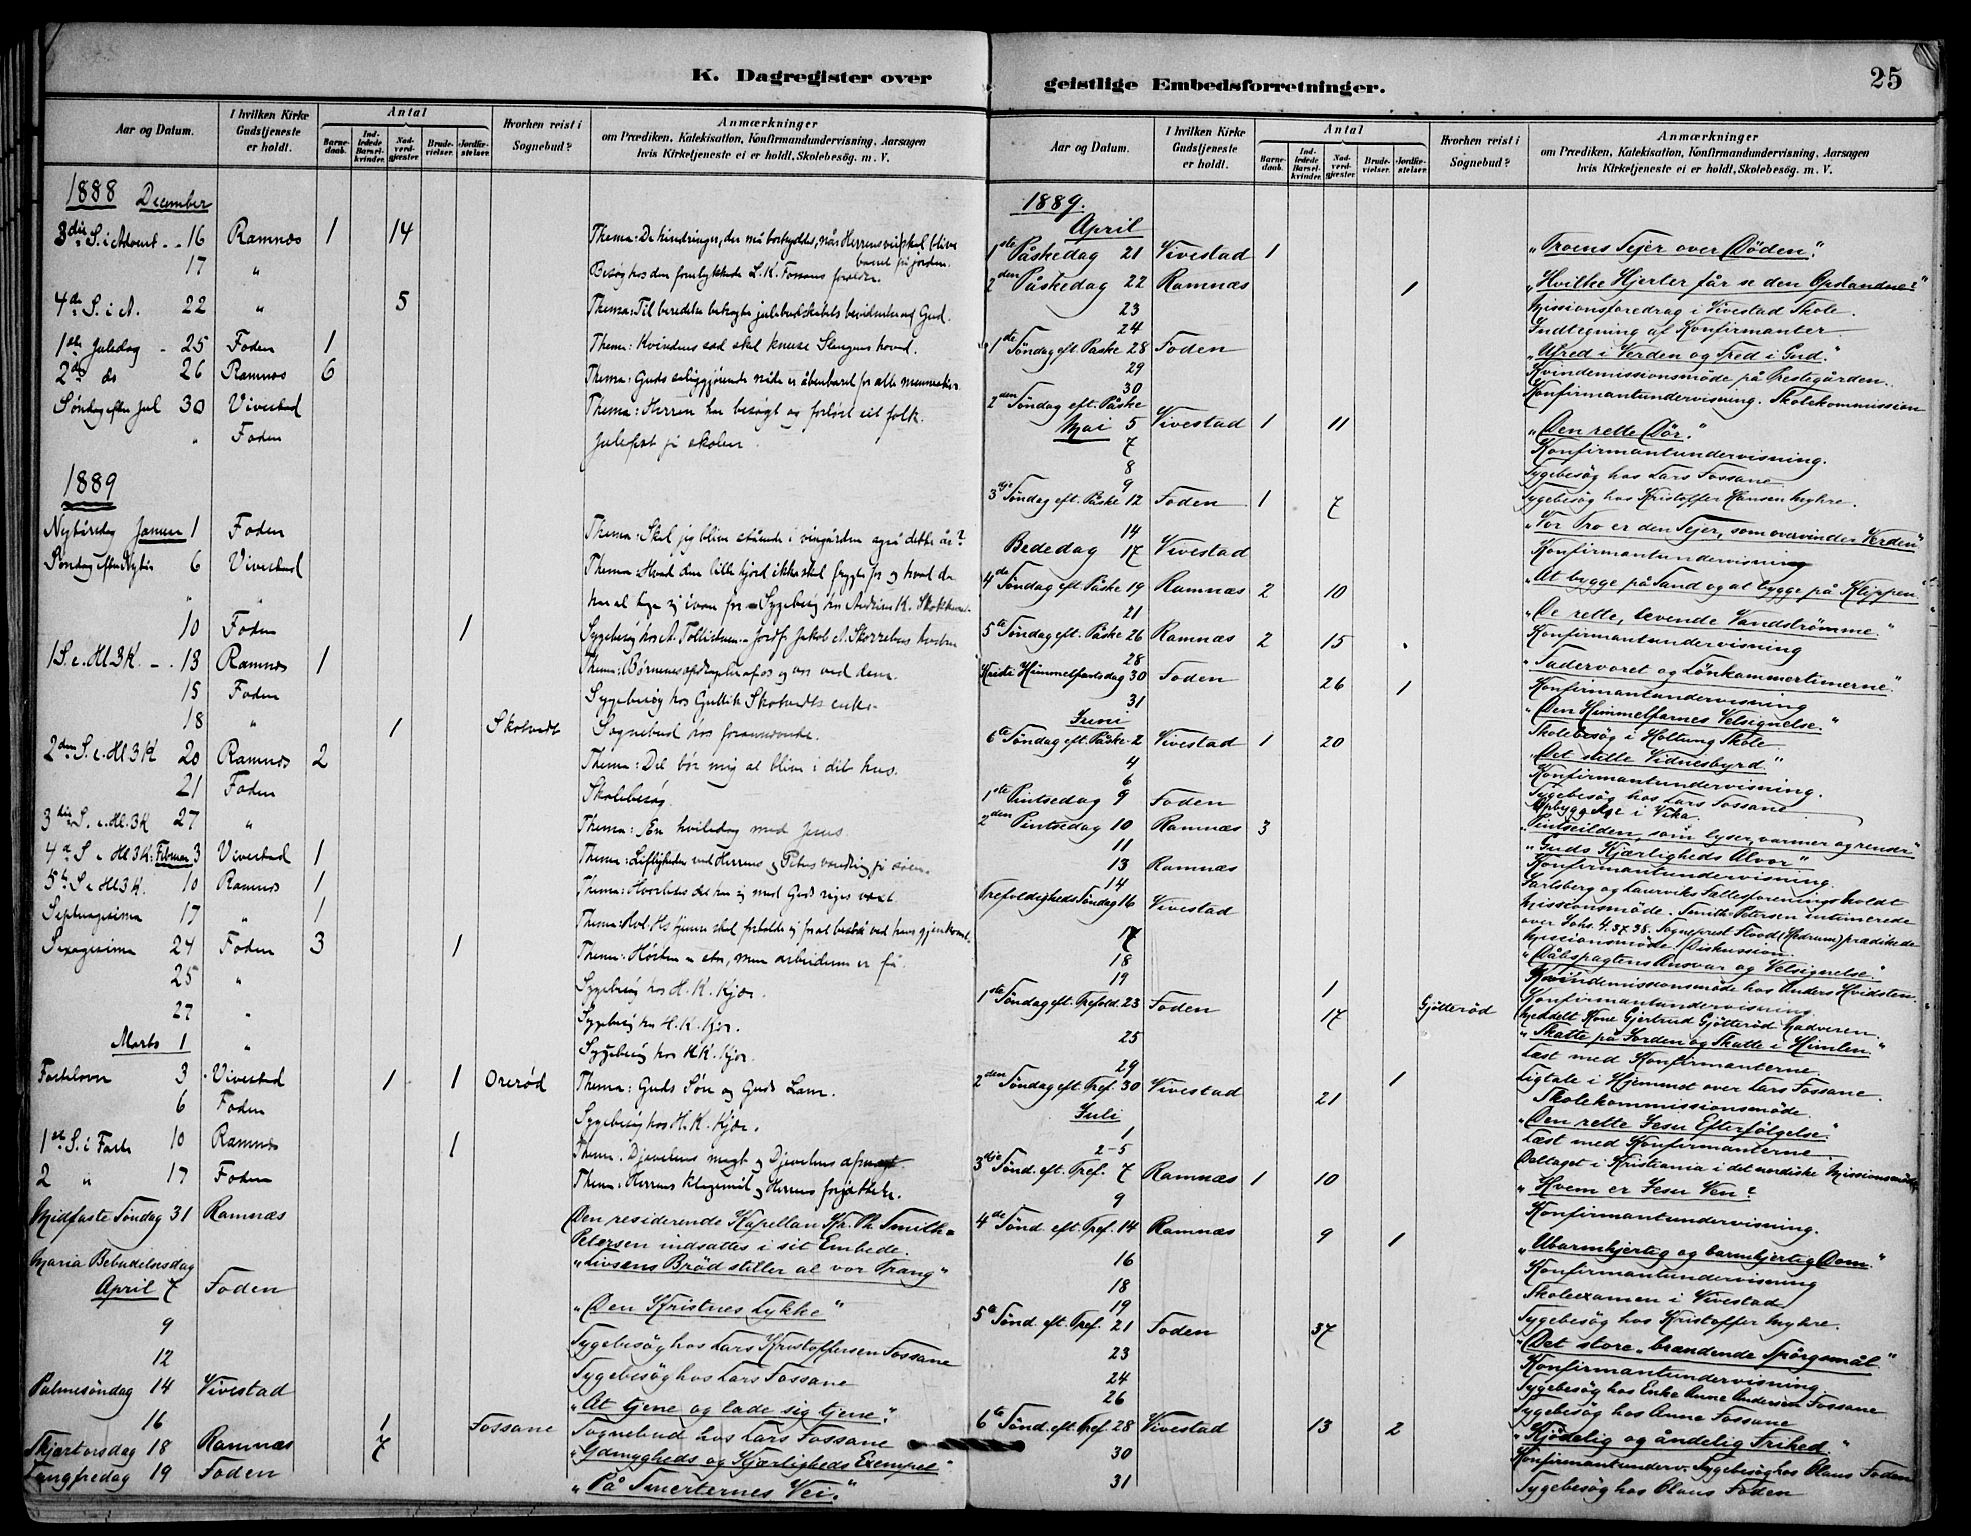 K. Dagregister over
Aar og Datum.
I hvilken Kirke Gudstjeneste er holdt.
Antal
Barnedaab.
Indledede Barselkvinder.
Nadverdgjester
Brudevielser.
Jordfæstelser.
Hvorhen reist i Sognebud?
Anmærkninger
om Prædiken, Katekisation, Konfirmandundervisning, Aarsagen
hvis Kirketjeneste ei er holdt, Skolebesøg. m. V.
1888 December
3die S. i Advent 16 Ramnæs 1 14 Thema: De hindringer, der må bortryddes, når Herrens vei skal blive
banet på jorden.
17 " Besøg hos den forulykkede L. K. Fossans forældre.
4de S. i A. 22 " 5 Thema: Til beredelse betragte julebudskabets
1ste Juledag 25 Foden 1 Thema: Kvindens sæd skal knuse Slangens hoved.
2de do 26 Ramnæs 6 Thema: Guds saliggjørende nåde er åbenbaret for alle mennesker.
Søndag efter Jul 30 Vivestad Thema: Herren har besøgt og forløst sit folk.
" Foden Julefest på skolen.
1889
Nytårsdag Januar 1 Foden Thema: Skal jeg blive stående i vingården også dette år?
Søndag efter Nytår 6 Vivestad Thema: Hvad den lille hjord ikke skal frygte for og hvad den
har at tage sig ivare for - Sygebesøg hos
10 Foden 1 Sygebesøg hos A. Tollefsen - Jordf. Jakob A.
1 S. e. Hl3K. 13 Ramnæs 1 Thema: Børnenes
15 Foden Sygebesøg hos Gullik Skotvedts enke.
18 " 1 Skotvedt Sognebud hos forannævnte.
2den S. e. Hl.3K 20 Ramnæs 2 Thema: Det bør mig at blive i dit hus.
21 Foden Skolebesøg
3die S. e. Hl.3K 27 " Thema: En hviledag med Jesus.
4de S. e. Hl3K. Februar 3 Vivestad 1 Thema: Ligheden ved Herrens og Peters vandring på søen.
5te S. e. Hl3K. 10 Ramnæs 1 Thema: Hvorledes det har sig med Guds riges væxt.
Septuagesima 17 " 1
Sexagesima 24 Foden 3 1 Thema: Høsten er stor, men arbeiderne er få.
25 " Sygebesøg hos H. K. Kjær.
27 " Sygebesøg hos H. K. Kjær.
Marts 1 " Sygebesøg hos H. K. Kjær.
Fastelavn 3 Vivestad 1 1 Orerød Thema: Guds Søn og Guds Lam.
6 Foden Sygebesøg hos H. K. Kjær.
1ste S. i Faste 10 Ramnæs 1 Thema: Djævelens magt og Djævelens afmagt.
2 " 17 Foden Thema: Herrens klagemål og Herrens forjættelse.
Midfaste Søndag 31 Ramnæs Den residerende Kapellan Ka. Th. Smith-
Petersen indsattes i sit Embede.
"Livsens Brød stiller al vor Trang"
Maria Bebudelsesdag
April 7 Foden "Den Kristnes Lykke"
9 Sygebesøg hos Lars Kristoffersen Fossane
12 Sygebesøg hos Lars Fossane
Palmesøndag 14 Vivestad "At tjene og lade sig tjene."
16 1 Fossane Sognebud hos Lars Fossane
Skjærtorsdag 18 Ramnæs 7 "Ydmygheds og Kjærligheds Exempel"
Langfredag 19 Foden "På Smerternes Vei."
geistlige Embedsforretninger.
25
Aar og Datum.
I hvilken Kirke Gudstjeneste er holdt.
Antal
Barnedaab.
Indledede Barselkvinder.
Nadverdgjester
Brudevielser.
Jordfæstelser.
Hvorhen reist i Sognebud?
Anmærkninger
om Prædiken, Katekisation, Konfirmandundervisning, Aarsagen
hvis Kirketjeneste ei er holdt, Skolebesøg. m. V.
1889.
April
1ste Påskedag 21 Vivestad 1 "Troens Sejer over Døden."
2den Påskedag 22 Ramnæs 1 "Hvilke Hjerter får se den Opstandne?"
23 Missionsforedrag i Vivestad Skole.
24 Indtegning af Konfirmanter
1ste Søndag eft. Påske 28 Foden "Ufred i Verden og Fred i Gud."
29 Kvindemissionsmøde på Prestegården.
30 Konfirmantundervisning. Skolekommission
2den Søndag eft. Påske
Mai 5 Vivestad 1 11 "Den rette Dør."
7 Konfirmantundervisning.
8 Sygebesøg hos Lars Fossane
9 Sygebesøg hos Kristoffer Hansen Myhre.
3die Søndag eft. Påske 12 Foden 1 7 "Vor Tro er den Sejer, som overvinder Verden"
14 Konfirmantundervisning
Bededag 17 Vivestad "At bygge på Sand og at bygge på Klippen."
4de Søndag eft. Påske 19 Ramnæs 2 10 "De rette, levende Vandstrømme."
21 Konfirmantundervisning
5te Søndag eft. Påske 26 Ramnæs 2 15 "Fadervoret og Lønkammertimerne."
28 Konfirmantundervisning
Kristi Himmelfartsdag 30 Foden 26 1 "Den Himmelfarnes Velsignelse."
31 Skolebesøg i Holtung Skole.
Juni
6te Søndag eft. Påske 2 Vivestad 1 20 "Det stille Vidnesbyrd."
4 Konfirmantundervisning.
6 Sygebesøg hos Lars Fossane
Opbygg. Møde i Vika.
1ste Pintsedag 9 Foden "Pintseilden, som lyser, varmer og rendser"
2den Pintsedag 10 Ramnæs 3 "Guds Kjærligheds Alvor"
11 Konfirmantundervisning.
13 Ramnæs Jarlsberg og Laurviks Fællesforenings holdt
Missionsmøde. Smith-Petersen intimerede
over Johs. 4. 37. 38. Sogneprest Flood (Hedrum) prædikede
14 Missionsmøde (Diskussion)
Trefoldigheds Søndag 16 Vivestad "Dåbspagtens Ansvar og Velsignelse"
17 Kvindemissionsmøde hos Anders Hvidsten.
18 Konfirmantundervisning.
19 1 Gjøtterød Meddelt Kone Gjertrud Gjøtterød Nadveren.
1ste Søndag eft. Trefold. 23 Foden 17 "Skatte på Jorden og Skatte i Himlen."
25 Læst med Konfirmanterne.
29 1 Ligtale i Hjemmet over Lars Fossane.
Skolekommissionsmøde.
2den Søndag eft. Tref. 30 Vivestad 21 "Den rette Jesu Efterfølgelse."
Juli
1 Læst med Konfirmanterne
2-5 Deltaget i Kristiania i det nordiske Missionsmøde
3die Sønd. eft. Tref. 7 Ramnæs 1 10 "Hvem er Jesu Ven?"
9 Konfirmantundervisning.
4de Sønd. eft. Tref. 14 Ramnæs 9 1 "Ubarmhjertig og barmhjertig Dom."
16 Konfirmantundervisning
18 Skoleexamen i Vivestad
19 Sygebesøg hos Kristoffer Myhre.
5te Sønd. eft. Tref. 21 Foden 37 "Det store, brændende Spørgsmål."
23 Konfirmantundervisning
24 Sygebesøg hos Enke Anne Andersen Fossane
26 Sygebesøg hos Anne Fossane
6te Sønd. eft. Tref. 28 Vivestad 13 2 "Kjødelig og åndelig Frihed."
30 Konfirmantunderv. Sygebesøg hos Olaus Foden
31 Sygebesøg hos Olaus Foden